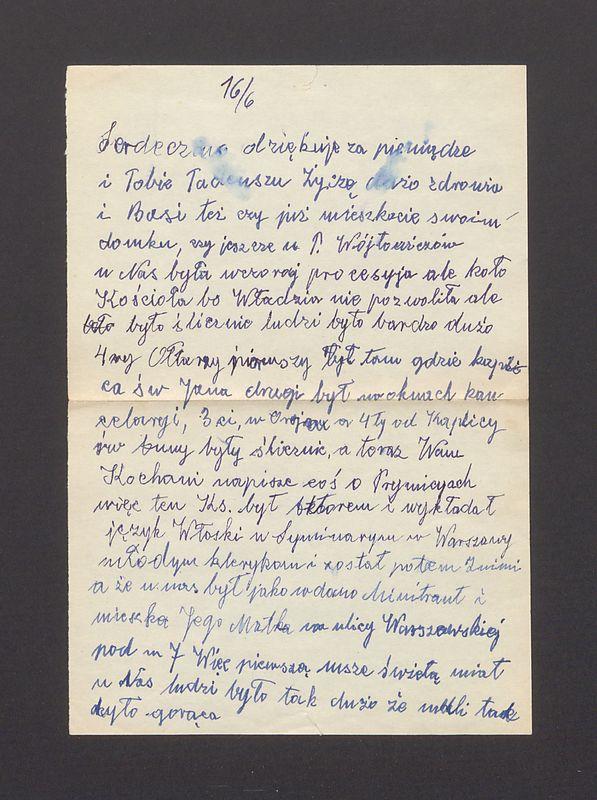 16/6
Serdecznie dziękuje za pieniądze
i Tobie Tadeuszu Życzę dużo zdrowia
i Basi też czy już mieszkacie swoim
domku, czy jeszcze u P. Wójtowiczów
u Nas była wczoraj procesyja ale koło
Kościoła bo Władzia nie pozwoliła ale
było ślicznie ludzi było bardzo dużo
4ry Ołtarzy pierwszy był tam gdzie kapli
ca św Jana drugi był na oknach kan-
celaryi, 3ci, w a 4ty od Kaplicy
były ślicznie, a teraz Wam
Kochani napisze coś o Prymicyach
więc ten Ks. był i wykładał
język Włoski u Syminaryum w Warszawy
młodym klerykam i został potem Znimi
a że u nas był jako wdano Minitrant i
mieszka Jego Matka na ulicy Warszawskiej
pod n 7 Więc pierwszą msze świetą miał
u Nas ludzi było tak dużo że mdli tak
było gorąca